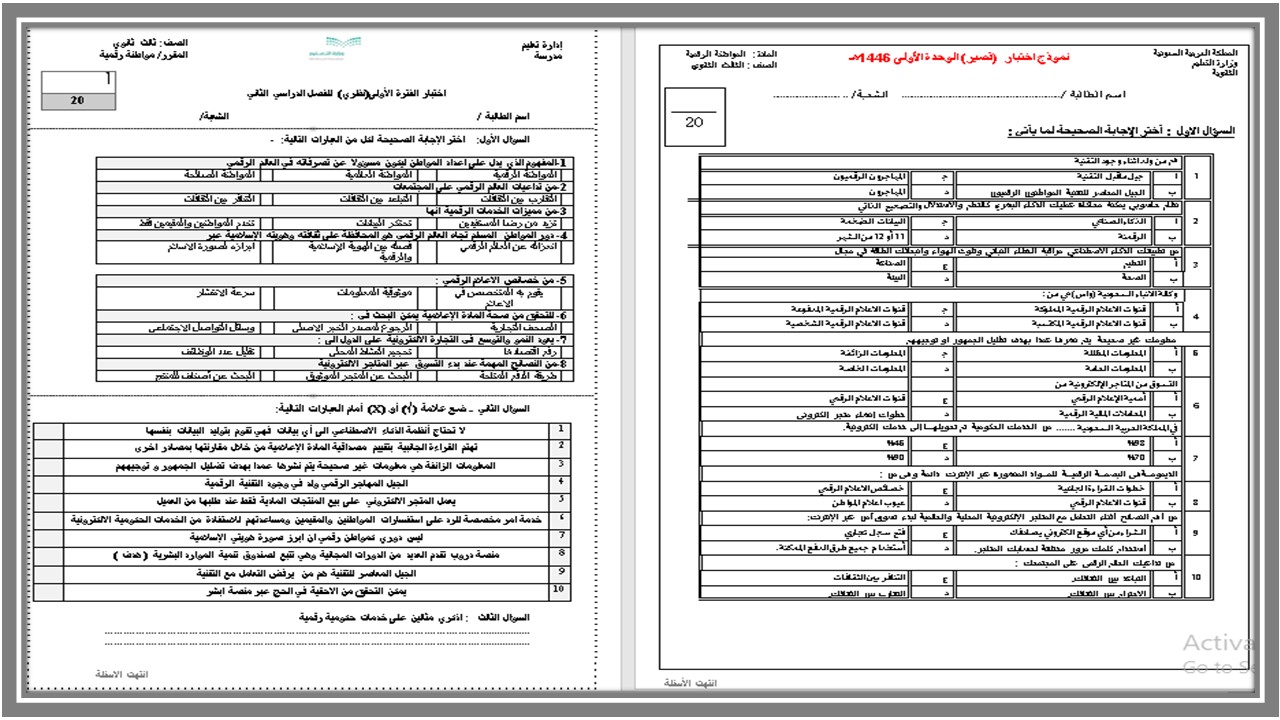 المملكة العربية السعودية
وزارة التعليم
الثانوية
نموذج اختبار (قصير) الوحدة الأولى 1446هـ
المادة: المواطنة الرقمية
الصف: الثالث الثانوي
اسم الطالبة / الشعبة/
20
السؤال الاول : أختر الإجابة الصحيحة لما يأتي :
1 هم من ولد اثناء وجود التقنية
أ جيل ماقبل التقنية ج المهاجرون الرقميون
ب الجيل المعاصر للتقنية المواطنون الرقميون د المهاجرون
2 نظام حاسوبي يمكنه محاكاة عمليات الذكاء البشري كالتعلم والاستدلال والتصحيح الذاتي
أ الذكاء الصناعي ج البيانات الضخمة
ب الرقمنة د 11 أو 12 من الشهر
3 من تطبيقات الذكاء الاصطناعي مراقبة الغطاء النباتي وتلوث الهواء وانبعاثات الطاقة في مجال
أ التعليم ج الصناعة
ب الصحة د البيئة
4 وكالة الأنباء السعودية (واس) هي من :
أ قنوات الاعلام الرقمية المملوكة ج قنوات الاعلام الرقمية المدفوعة
ب قنوات الاعلام الرقمية المكتسبة د قنوات الاعلام الرقمية الشخصية
5 معلومات غير صحيحة يتم نشرها عمدا بهدف تضليل الجمهور او توجيههم
أ المعلومات المضللة ج المعلومات الزائفة
ب المعلومات العامة د المعلومات الخاصة
6 التسوق من المتاجر الإلكترونية من
أ أهمية الإعلام الرقمي ج قنوات الاعلام الرقمي
ب المعاملات المالية الرقمية د خطوات انشاء متجر الكتروني
7 في المملكة العربية السعودية ....... من الخدمات الحكومية تم تحويلها إلى خدمات إلكترونية.
أ %98 ج %45
ب %70 د %90
8 الديمومة في البصمة الرقمية للمواد المنشورة عبر الإنترنت دائمة وهي من :
أ خطوات القراءة الجانبية ج خصائص الاعلام الرقمي
ب قنوات الاعلام الرقمي د عيوب اعلام المواطن
9 من أهم النصائح أثناء التعامل مع المتاجر الإلكترونية المحلية والعالمية لبدء تسوق آمن عبر الإنترنت:
أ الشراء من أي موقع الكتروني يصادفك ج فتح سجل تجاري
ب أستخدام كلمات مرور مختلفة لحسابات المتاجر. د أستخدام جميع طرق الدفع الممكنة.
10 من تداعيات العالم الرقمي على المجتمعات :
أ التباعد بين الثقافات. ج التنافر بين الثقافات
ب الاحترام بين الثقافات. د التقارب بين الثقافات.
انتهت الأسئلة
Activa
Go to Se
إدارة تعليم
مدرسة
الصف: ثالث ثانوي
المقرر/ مواطنة رقمية
أ
20
اختبار الفترة الأولى(نظري) للفصل الدراسي الثاني
اسم الطالبة / الشعبة/
السؤال الأول: اختر الإجابة الصحيحة لكل من العبارات التالية: -
1-المفهوم الذي يدل على اعداد المواطن ليكون مسؤولا عن تصرفاته في العالم الرقمي
المواطنة الرقمية المواطنة العالمية المواطنة الصالحة
2-من تداعيات العالم الرقمي على المجتمعات
التقارب بين الثقافات التباعد بين الثقافات التنافر بين الثقافات
3-من مميزات الخدمات الرقمية انها
تزيد من رضا المستفيدين تحتكر البيانات تخدم المواطنين والمقيمين فقط
4- دور المواطن المسلم تجاه العالم الرقمي هو المحافظة على ثقافته وهويته الإسلامية عبر
انعزاله عن العالم الرقمي فصله بين الهوية الإسلامية والرقمية ابرازه لصورة الاسلام
5-من خصائص الاعلام الرقمي :
يقوم به المتخصص في الاعلام موثوقية المعلومات سرعة الانتشار
6-للتحقق من صحة المادة الإعلامية يمكن البحث في :
الصحف التجارية الرجوع لمصدر الخبر الاصلي وسائل التواصل الاجتماعي
7-يعود النمو والتوسع في التجارة الالكترونية على الدول الى :
رفع اقتصادها تحجيم النشاط المحلي تقليل عدد الوظائف
8-من النصائح المهمة عند بدء التسوق عبر المتاجر الالكترونية
طريقة الدفع المتاحة البحث عن المتجر الموثوق البحث عن أصناف المنتج
السؤال الثاني – ضع علامة (√) أو (X) أمام العبارات التالية:
1 لا تحتاج أنظمة الذكاء الاصطناعي الى أي بيانات فهي تقوم بتوليد البيانات بنفسها
2 تهتم القراءة الجانبية بتقييم مصداقية المادة الإعلامية من خلال مقارنتها بمصادر اخرى
3 المعلومات الزائفة هي معلومات غير صحيحة يتم نشرها عمدا بهدف تضليل الجمهور و توجيههم
4 الجيل المهاجر الرقمي ولد في وجود التقنية الرقمية
5 يعمل المتجر الالكتروني على بيع المنتجات المادية فقط عند طلبها من العميل
6 خدمة امر مخصصة للرد على استفسارات المواطنين والمقيمين ومساعدتهم للاستفادة من الخدمات الحكومية الالكترونية
7 ليس دوري كمواطن رقمي ان ابرز صورة هويتي الإسلامية
8 منصة دروب تقدم العديد من الدورات المجانية وهي تتبع لصندوق تنمية الموارد البشرية ( هدف )
9 الجيل المعاصر للتقنية هم من يرفض التعامل مع التقنية
10 يمكن التحقق من الاحقية في الحج عبر منصة ابشر
السؤال الثالث : اذكري مثالين على خدمات حكومية رقمية
انتهت الاسئلة